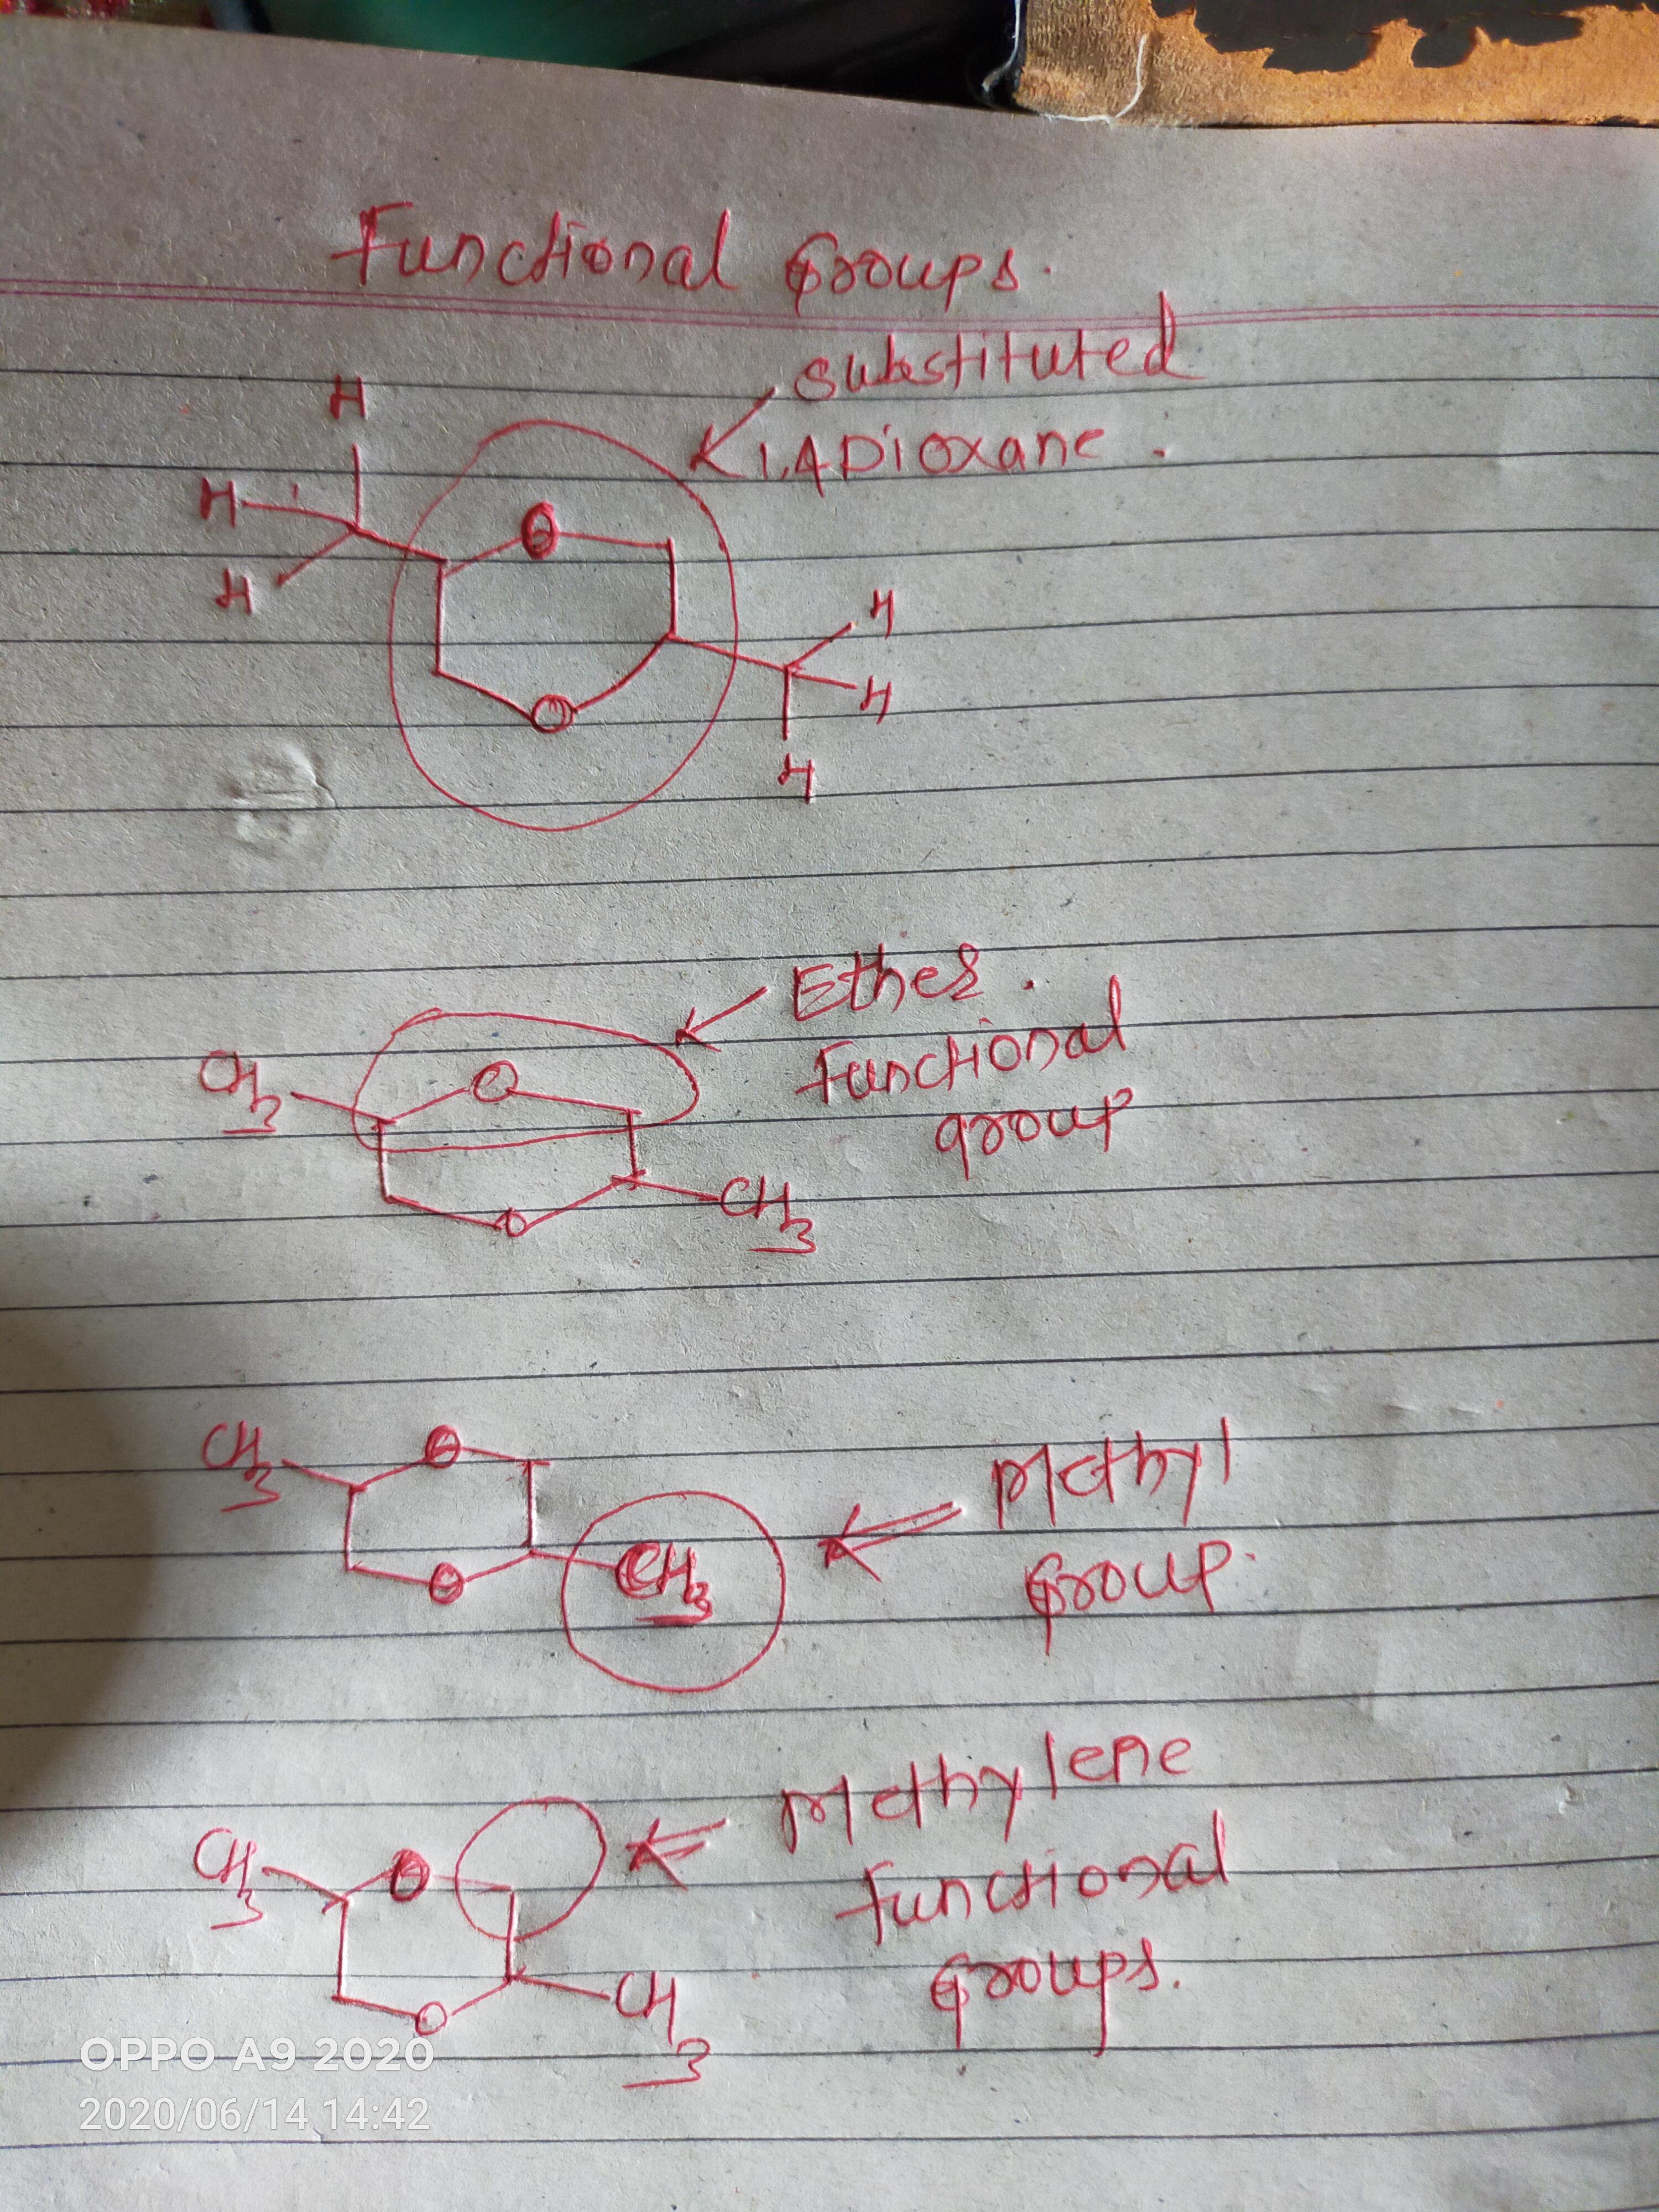 Functional Groups.
substituted
1,4 Dioxane.
H
H
O
H
H
H
O
H
Ether.
Functional
group
CH3
O
CH3
O
CH3
O
Methyl
Group.
O
CH3
Methylene
Functional
Groups.
CH3
O
CH3
O
OPPO A9 2020
2020/06/14 14:42